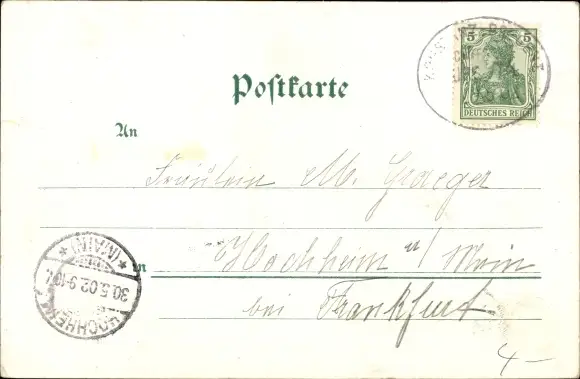 5 5
DEUTSCHES REICH
Postkarte
An
Fräulein M. Graeger
in Hochheim a/ Main
bei Frankfurt
HOCHHEIM
(MAIN)
30.5.02.9-10V.
4-